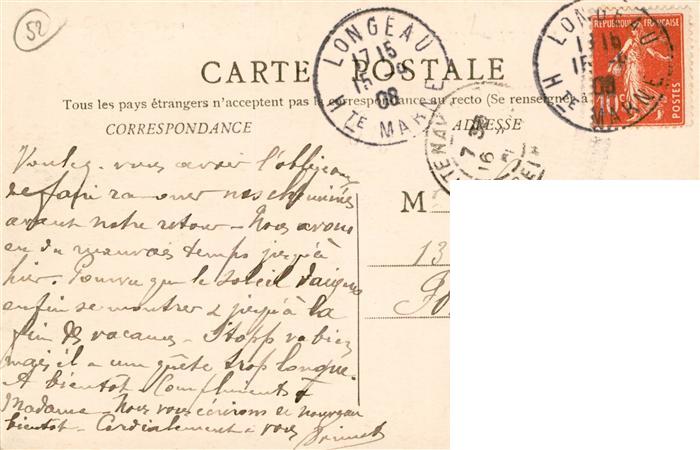 52
LONGEAU
17 15
15 -9
08
HTE MARNE
LONGEAU
17 15
15 -9
08
HTE MARNE
REPUBLIQUE FRANÇAISE
10c
POSTES
CARTE POSTALE
Tous les pays étrangers n'acceptent pas la correspondance au recto (Se renseigner à
CORRESPONDANCE
ADRESSE
7 35
16
Voulez-vous avoir l'obligeance
de faire ramoner nos cheminées
avant notre retour - Nous avons
eu du mauvais temps jusqu'à
hier. Pourvu que le soleil daigne
enfin se montrer & jusqu'à la
fin des vacances - Stopp va bien
mais il a une quête trop longue.
A bientôt - Compliments à
Madame - Nous vous écrirons de nouveau
bientôt - Cordialement à vous
M
13